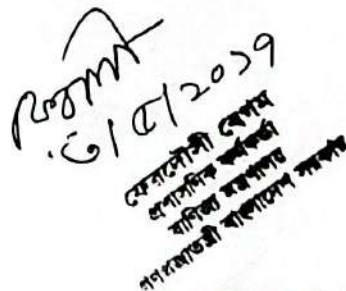 ফেরদৌসী
৩/৫/২০১৭
ফেরদৌসী বেগম
প্রশাসনিক কর্মকর্তা
বাণিজ্য মন্ত্রণালয়
গণপ্রজাতন্ত্রী বাংলাদেশ সরকার